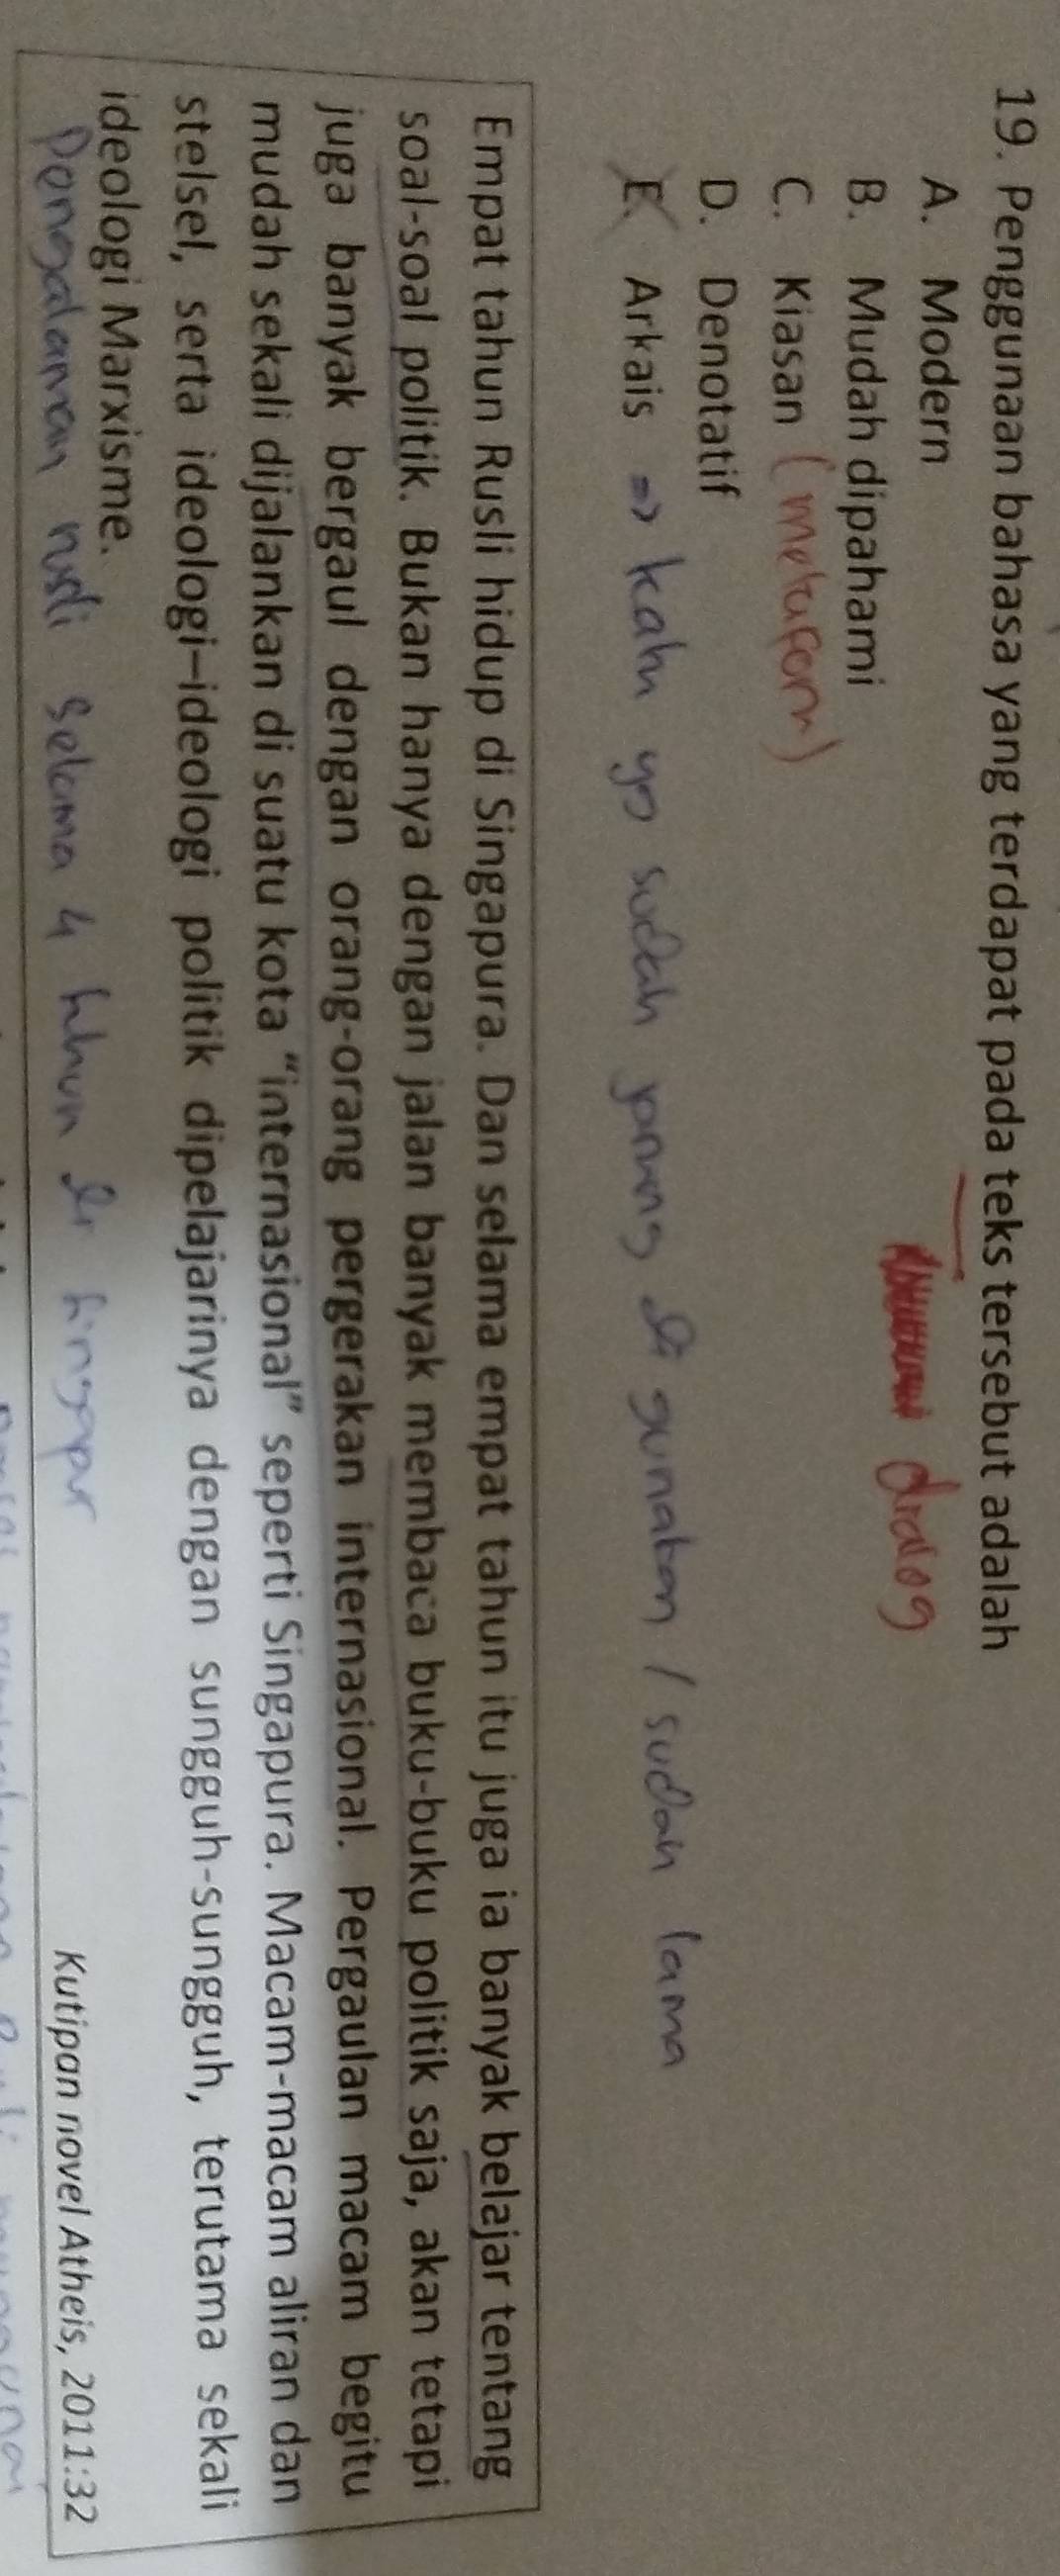 19. Penggunaan bahasa yang terdapat pada teks tersebut adalah
A. Modern
dialog
B. Mudah dipahami
C. Kiasan (metafora)
D. Denotatif
E. Arkais => kata yg sudah jarang di gunakan / sudah lama
Empat tahun Rusli hidup di Singapura. Dan selama empat tahun itu juga ia banyak belajar tentang
soal-soal politik. Bukan hanya dengan jalan banyak membaca buku-buku politik saja, akan tetapi
juga banyak bergaul dengan orang-orang pergerakan internasional. Pergaulan macam begitu
mudah sekali dijalankan di suatu kota "internasional" seperti Singapura. Macam-macam aliran dan
stelsel, serta ideologi–ideologi politik dipelajarinya dengan sungguh-sungguh, terutama sekali
ideologi Marxisme.
Pengalaman rusli selama 4 tahun di singapur
Kutipan novel Atheis, 2011:32